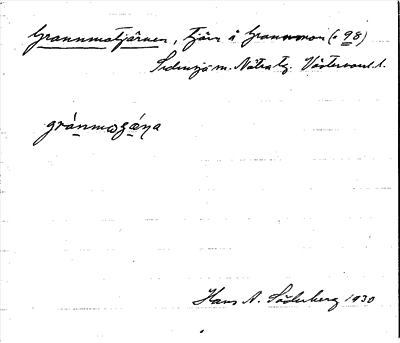 Grannmotjärnen, tjärn å Grannmon (o 98)
Sidensjö sn. Nätra tg. Västernorrl. l.
gránmo
Hans A. Söderberg 1930